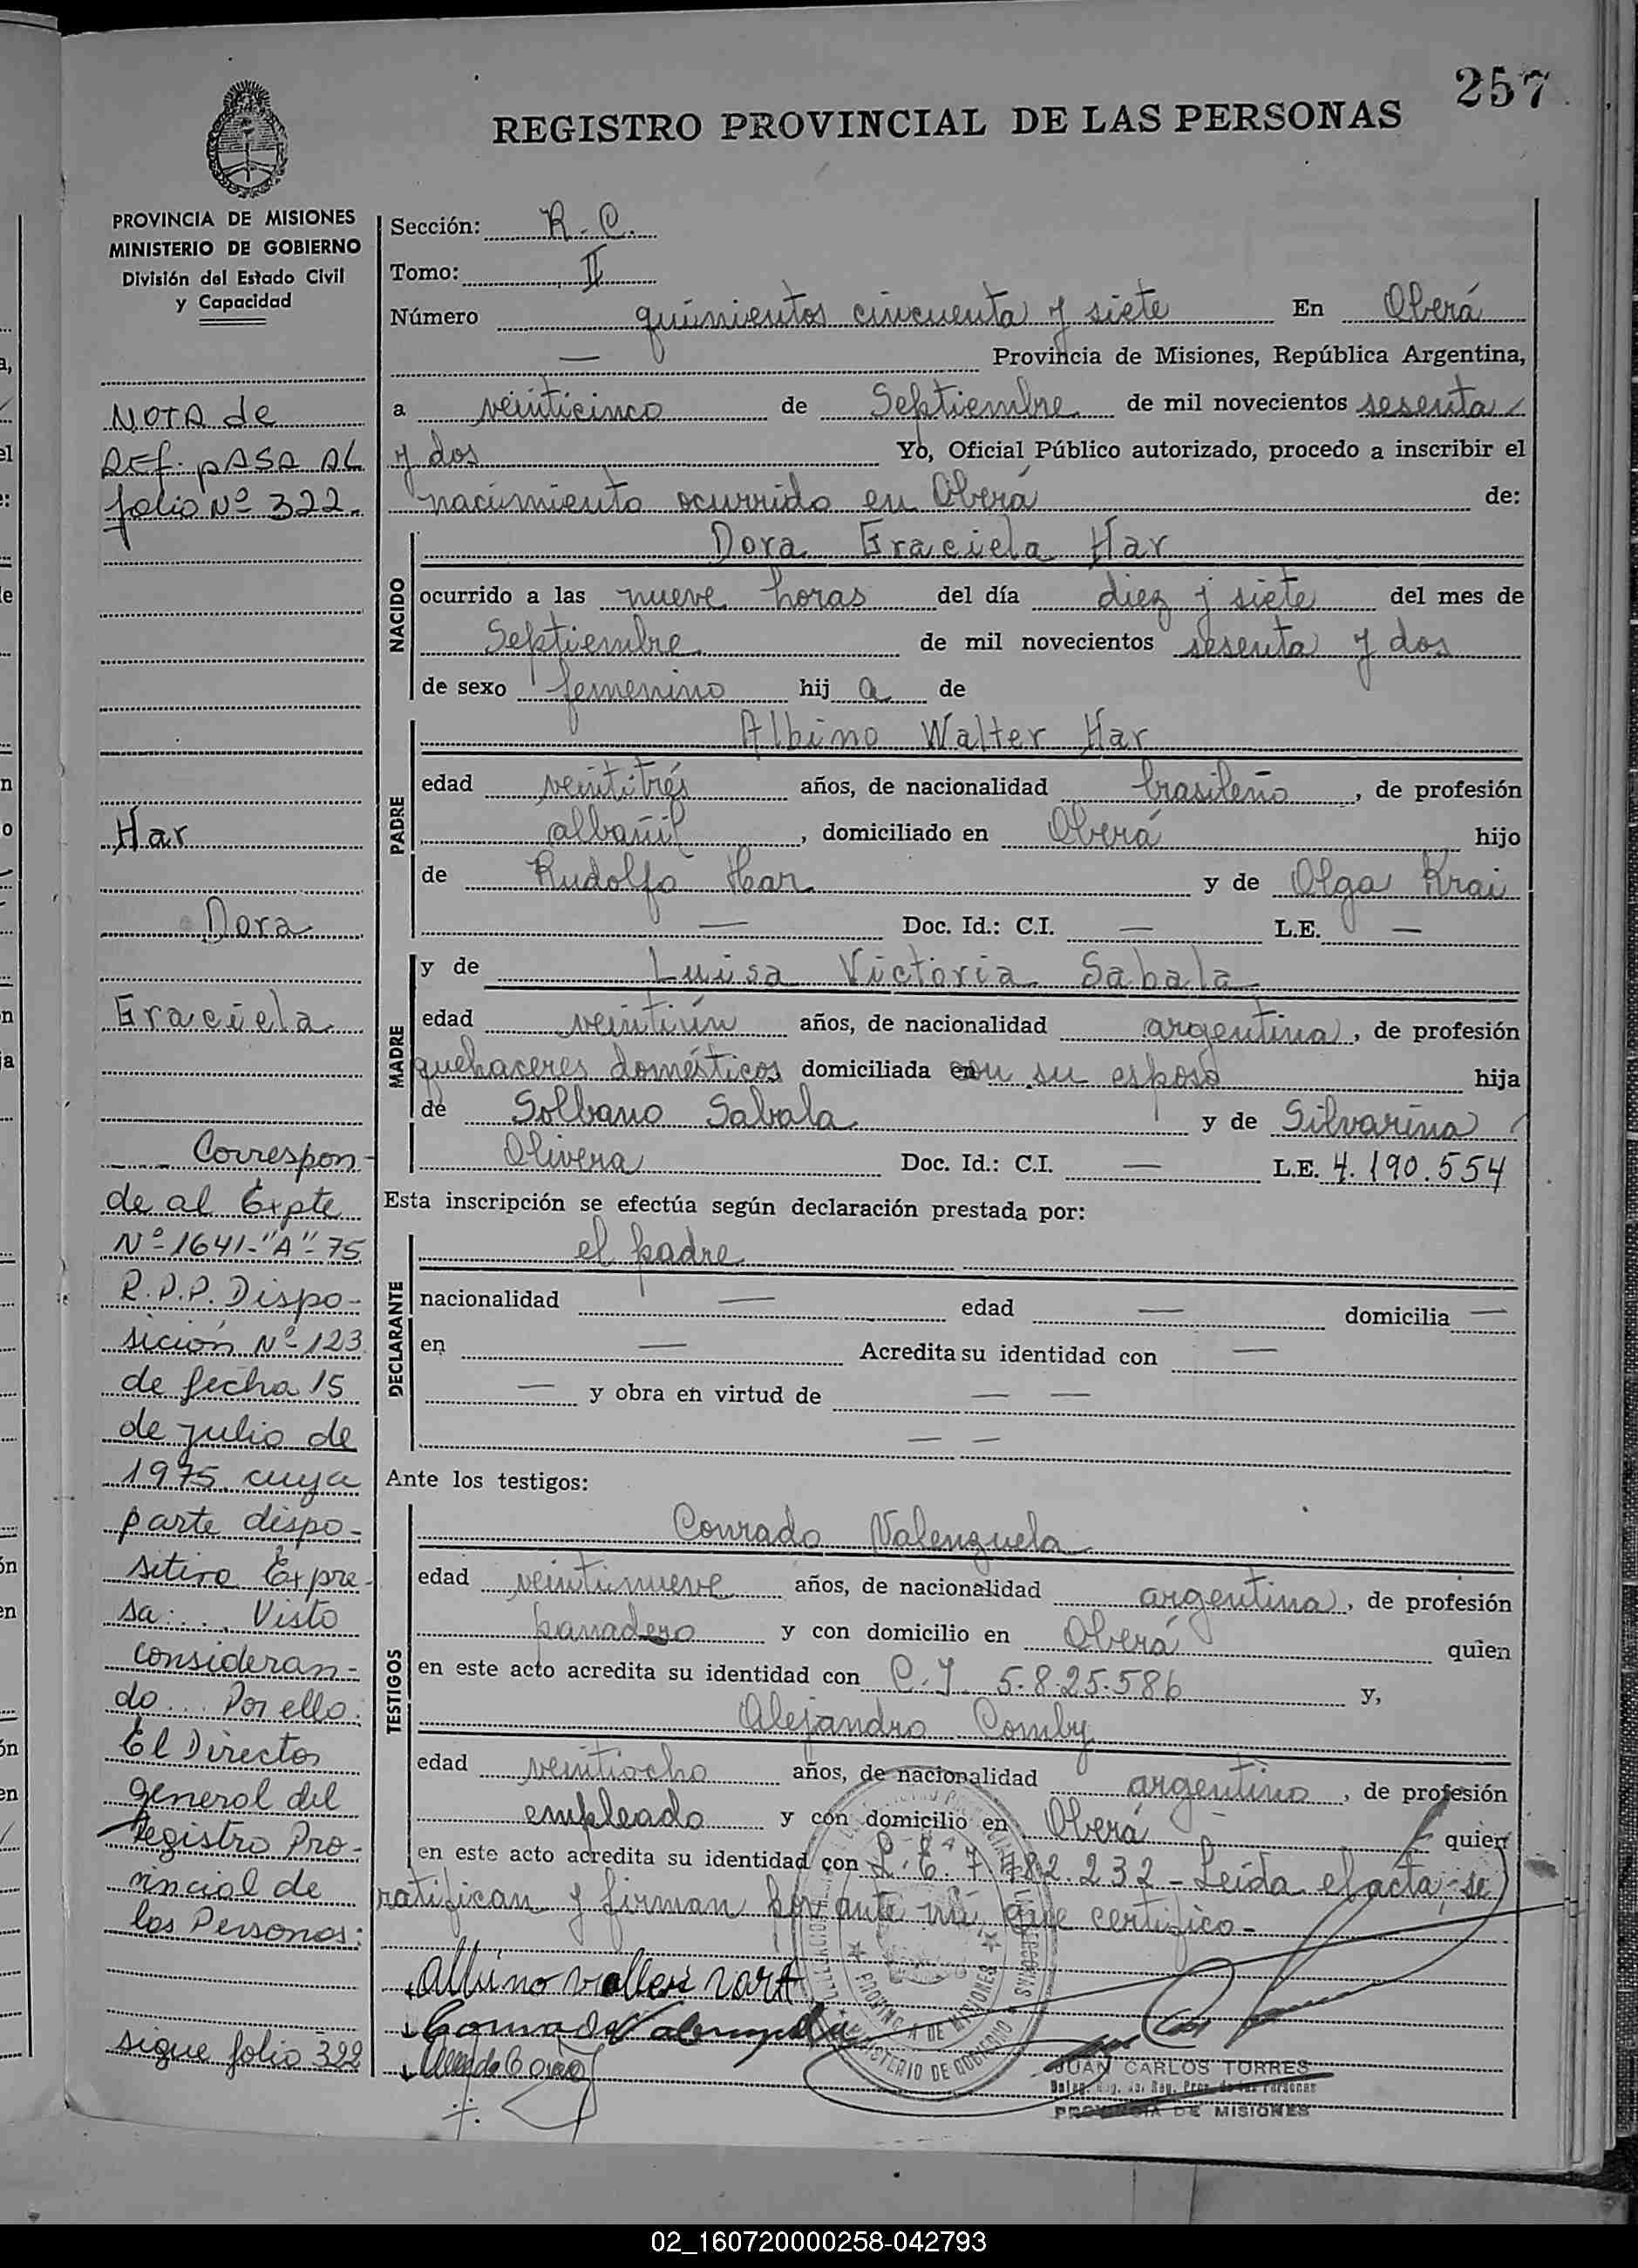 257
REGISTRO PROVINCIAL DE LAS PERSONAS
PROVINCIA DE MISIONES
MINISTERIO DE GOBIERNO
División del Estado Civil
y Capacidad
NOTA de
REF. pASA AL
folio Nº 322.
Har
Dora
Graciela
Correspon-
de al Expte
Nº 1641-"A"-75
R.P.P. Dispo-
sición Nº 123
de fecha 15
de julio de
1975. cuya
parte dispo-
sitiva Expre-
sa: .. Visto
consideran-
do... Por ello:
El Director
general del
Registro Pro-
vincial de
las Personas:
sigue folio 322
Sección: R. C.
Tomo: II
Número quinientos cincuenta y siete En Oberá
— Provincia de Misiones, República Argentina,
a veinticinco de Septiembre de mil novecientos sesenta
y dos Yo, Oficial Público autorizado, procedo a inscribir el
nacimiento ocurrido en Oberá de:
NACIDO
Dora Graciela Har
ocurrido a las nueve horas del día diez y siete del mes de
Septiembre de mil novecientos sesenta y dos
de sexo femenino hij a de
PADRE
Albino Walter Har
edad veintitrés años, de nacionalidad brasileño, de profesión
albañil, domiciliado en Oberá hijo
de Rudolfo Har y de Olga Krai
— Doc. Id.: C.I. — L.E. —
MADRE
y de Luisa Victoria Sabala
edad veintiún años, de nacionalidad argentina, de profesión
quehaceres domésticos domiciliada con su esposo hija
de Solbano Sabala y de Silvarina
Olivera Doc. Id.: C.I. — L.E. 4.190.554
Esta inscripción se efectúa según declaración prestada por:
DECLARANTE
el padre
nacionalidad — edad — domicilia —
en — Acredita su identidad con —
— y obra en virtud de — —
— —
Ante los testigos:
TESTIGOS
Conrado Valenzuela
edad veintinueve años, de nacionalidad argentina, de profesión
panadero y con domicilio en Oberá quien
en este acto acredita su identidad con C.I. 5.825.586 y,
Alejandro Comby
edad veintiocho años, de nacionalidad argentino, de profesión
empleado y con domicilio en Oberá quien
en este acto acredita su identidad con L.E. 7.482.232 - Leída el acta, se
ratifican y firman por ante mí, que certifico -
PROVINCIA DE MISIONES
MINISTERIO DE GOBIERNO
JUAN CARLOS TORRES
PROVINCIA DE MISIONES
02_160720000258-042793